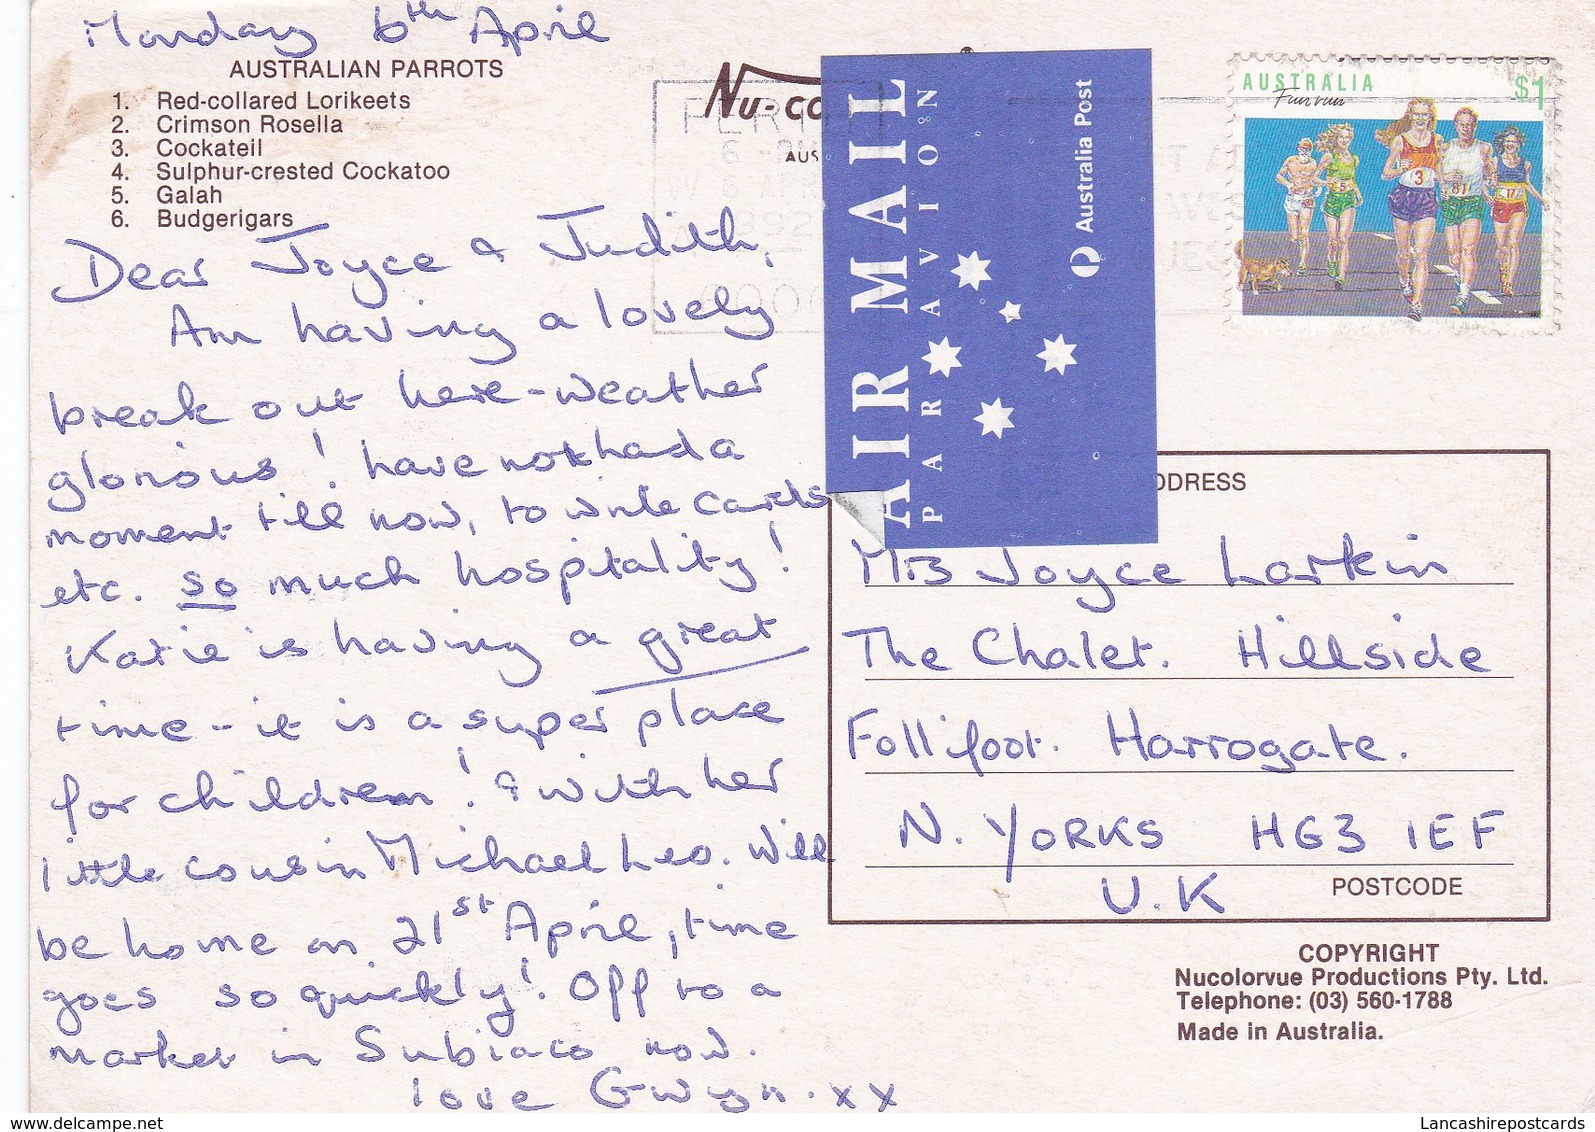 Monday 6th April
AUSTRALIAN PARROTS
1. Red-collared Lorikeets
2. Crimson Rosella
3. Cockateil
4. Sulphur-crested Cockatoo
5. Galah
6. Budgerigars
Dear Joyce & Judith,
Am having a lovely
break out here - weather
glorious! have not had a
moment till now, to write cards
etc. so much hospitality!
Katie is having a great
time - it is a super place
for children! & with her
little cousin Michael Leo. Will
be home on 21st April, time
goes so quickly! Off to a
market in Subiaco now.
love Gwyn. xx
NU-CO
AUS
PERTH
AIR MAIL
PAR AVION
Australia Post
AUSTRALIA $1
Fun run
3
5
81
17
DDRESS
Mrs Joyce Larkin
The Chalet. Hillside
Follifoot. Harrogate.
N. YORKS HG3 1EF
U.K
POSTCODE
COPYRIGHT
Nucolorvue Productions Pty. Ltd.
Telephone: (03) 560-1788
Made in Australia.
delcampe.net
Lancashirepostcards